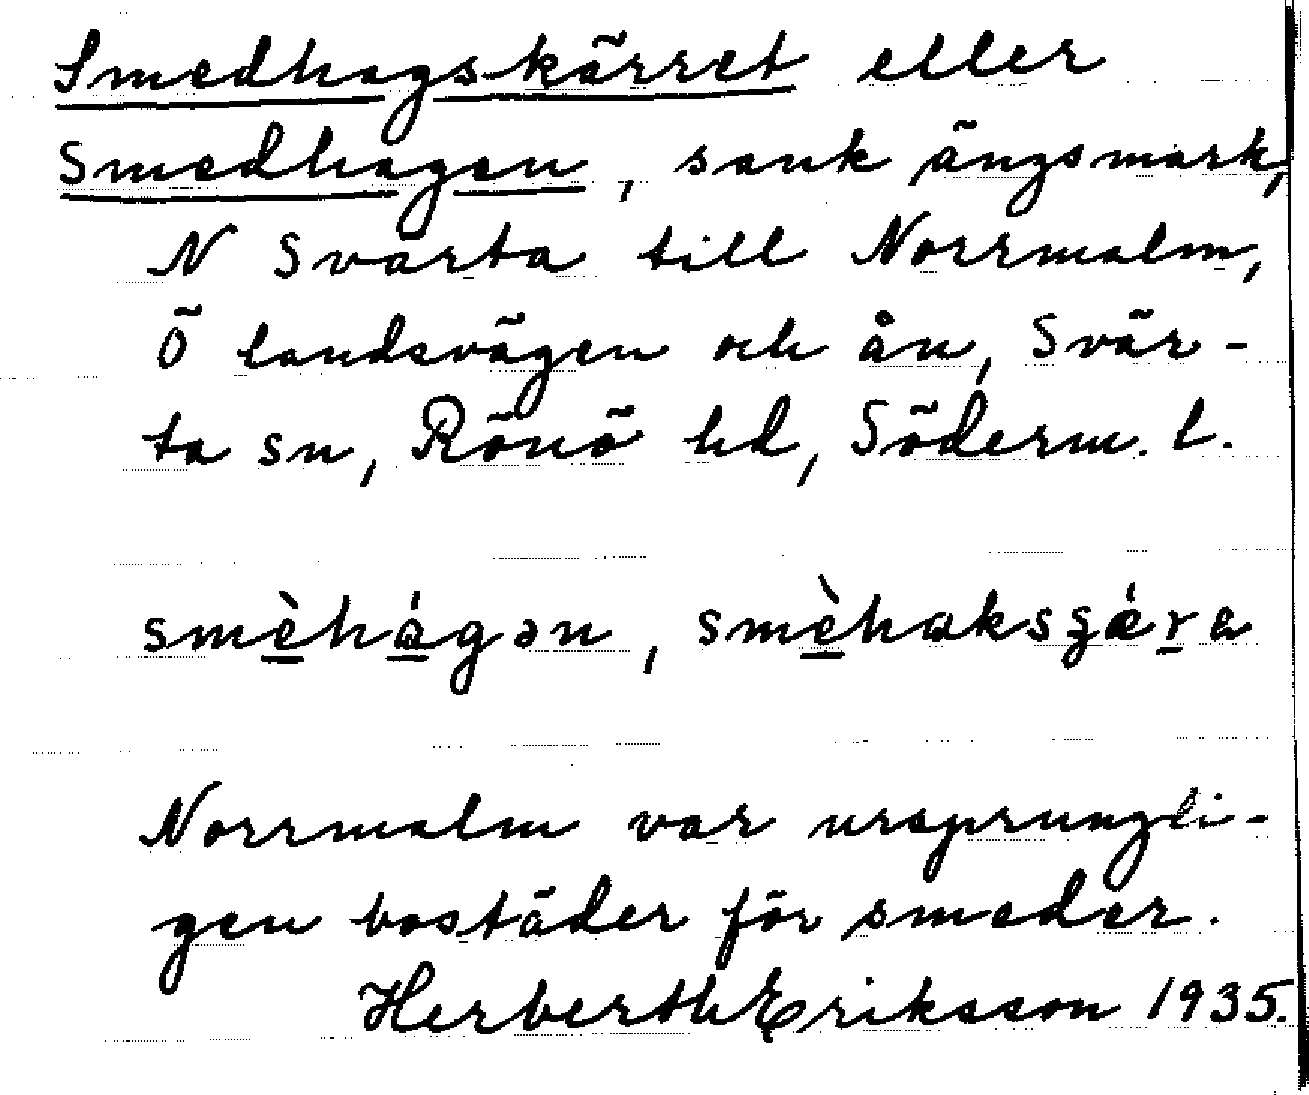 Smedhagskärret eller
Smedhagen, sank ängsmark,
N Svärta till Norrmalm,
Ö landsvägen och ån, Svär-
ta sn, Rönö hd, Söderm. l.
smèhágən, smèhaksʒǽra
Norrmalm var ursprungli-
gen bostäder för smeder.
Herberth Eriksson 1935.